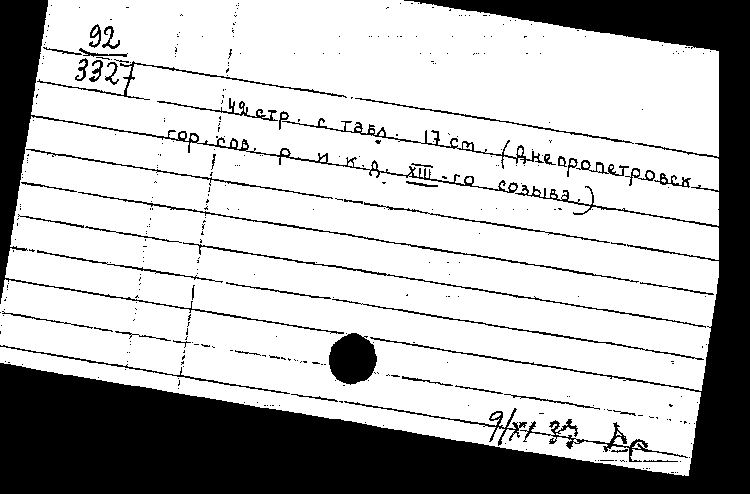 92
3327
42 стр. с табл. 17 cm. (Днепропетровск.
гор. сов. р. и к. д. XIII-го созыва.)
9/XI 33 Др